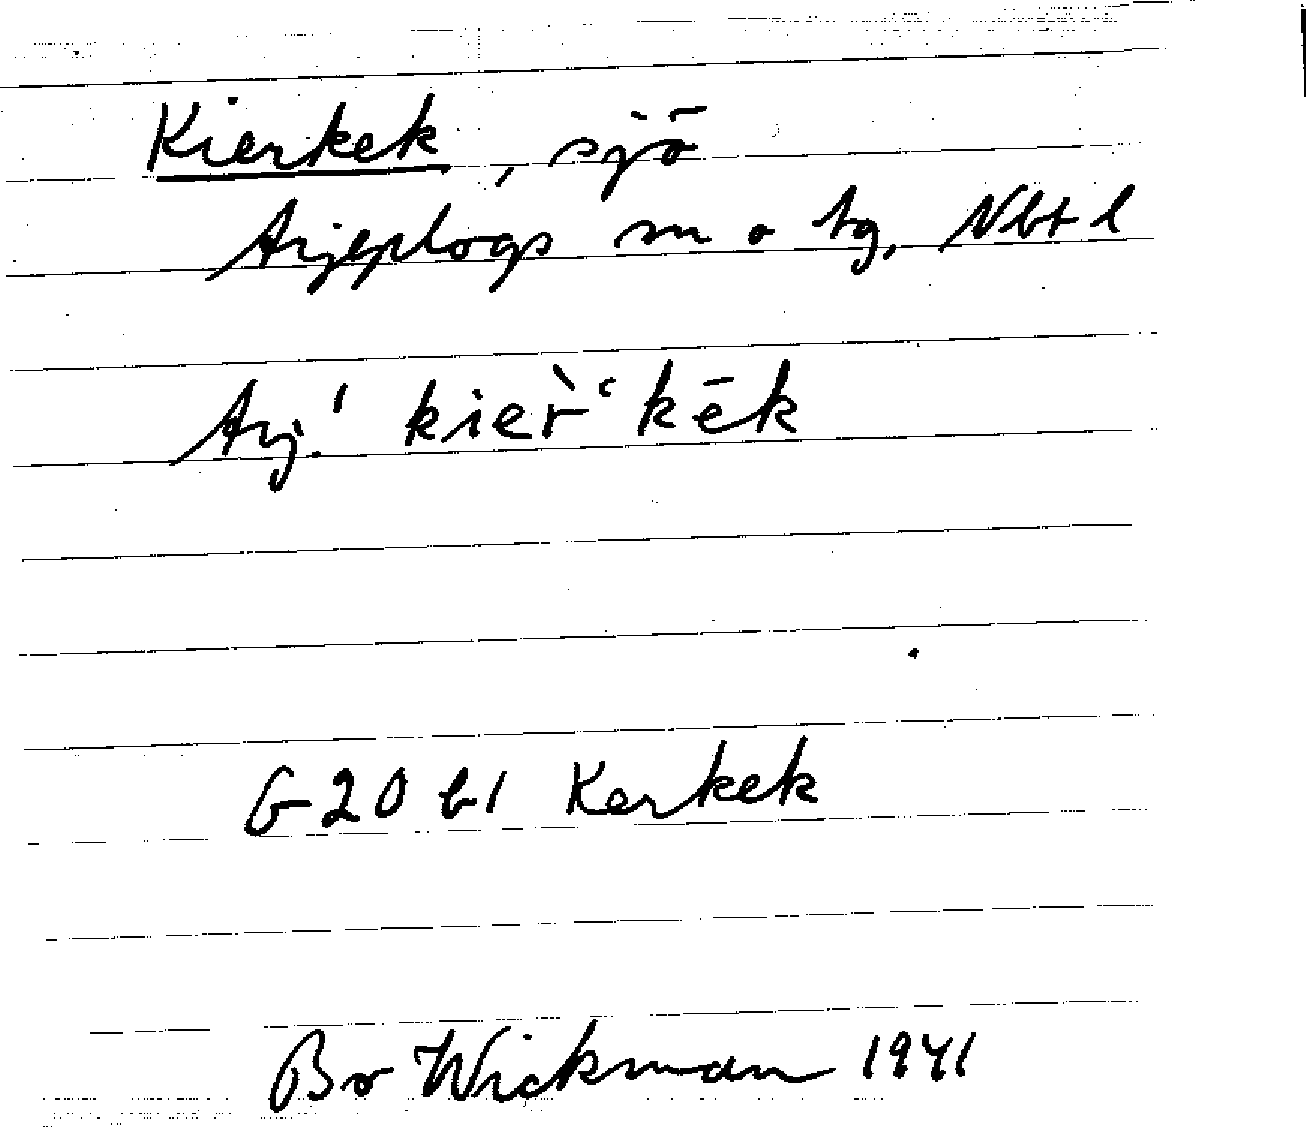 Kierkek, sjö
Arjeplogs sn o tg, Nbt l
Arj.' kier̀ʿkēk
G 20 b1 Kerkek
Bo Wickman 1941